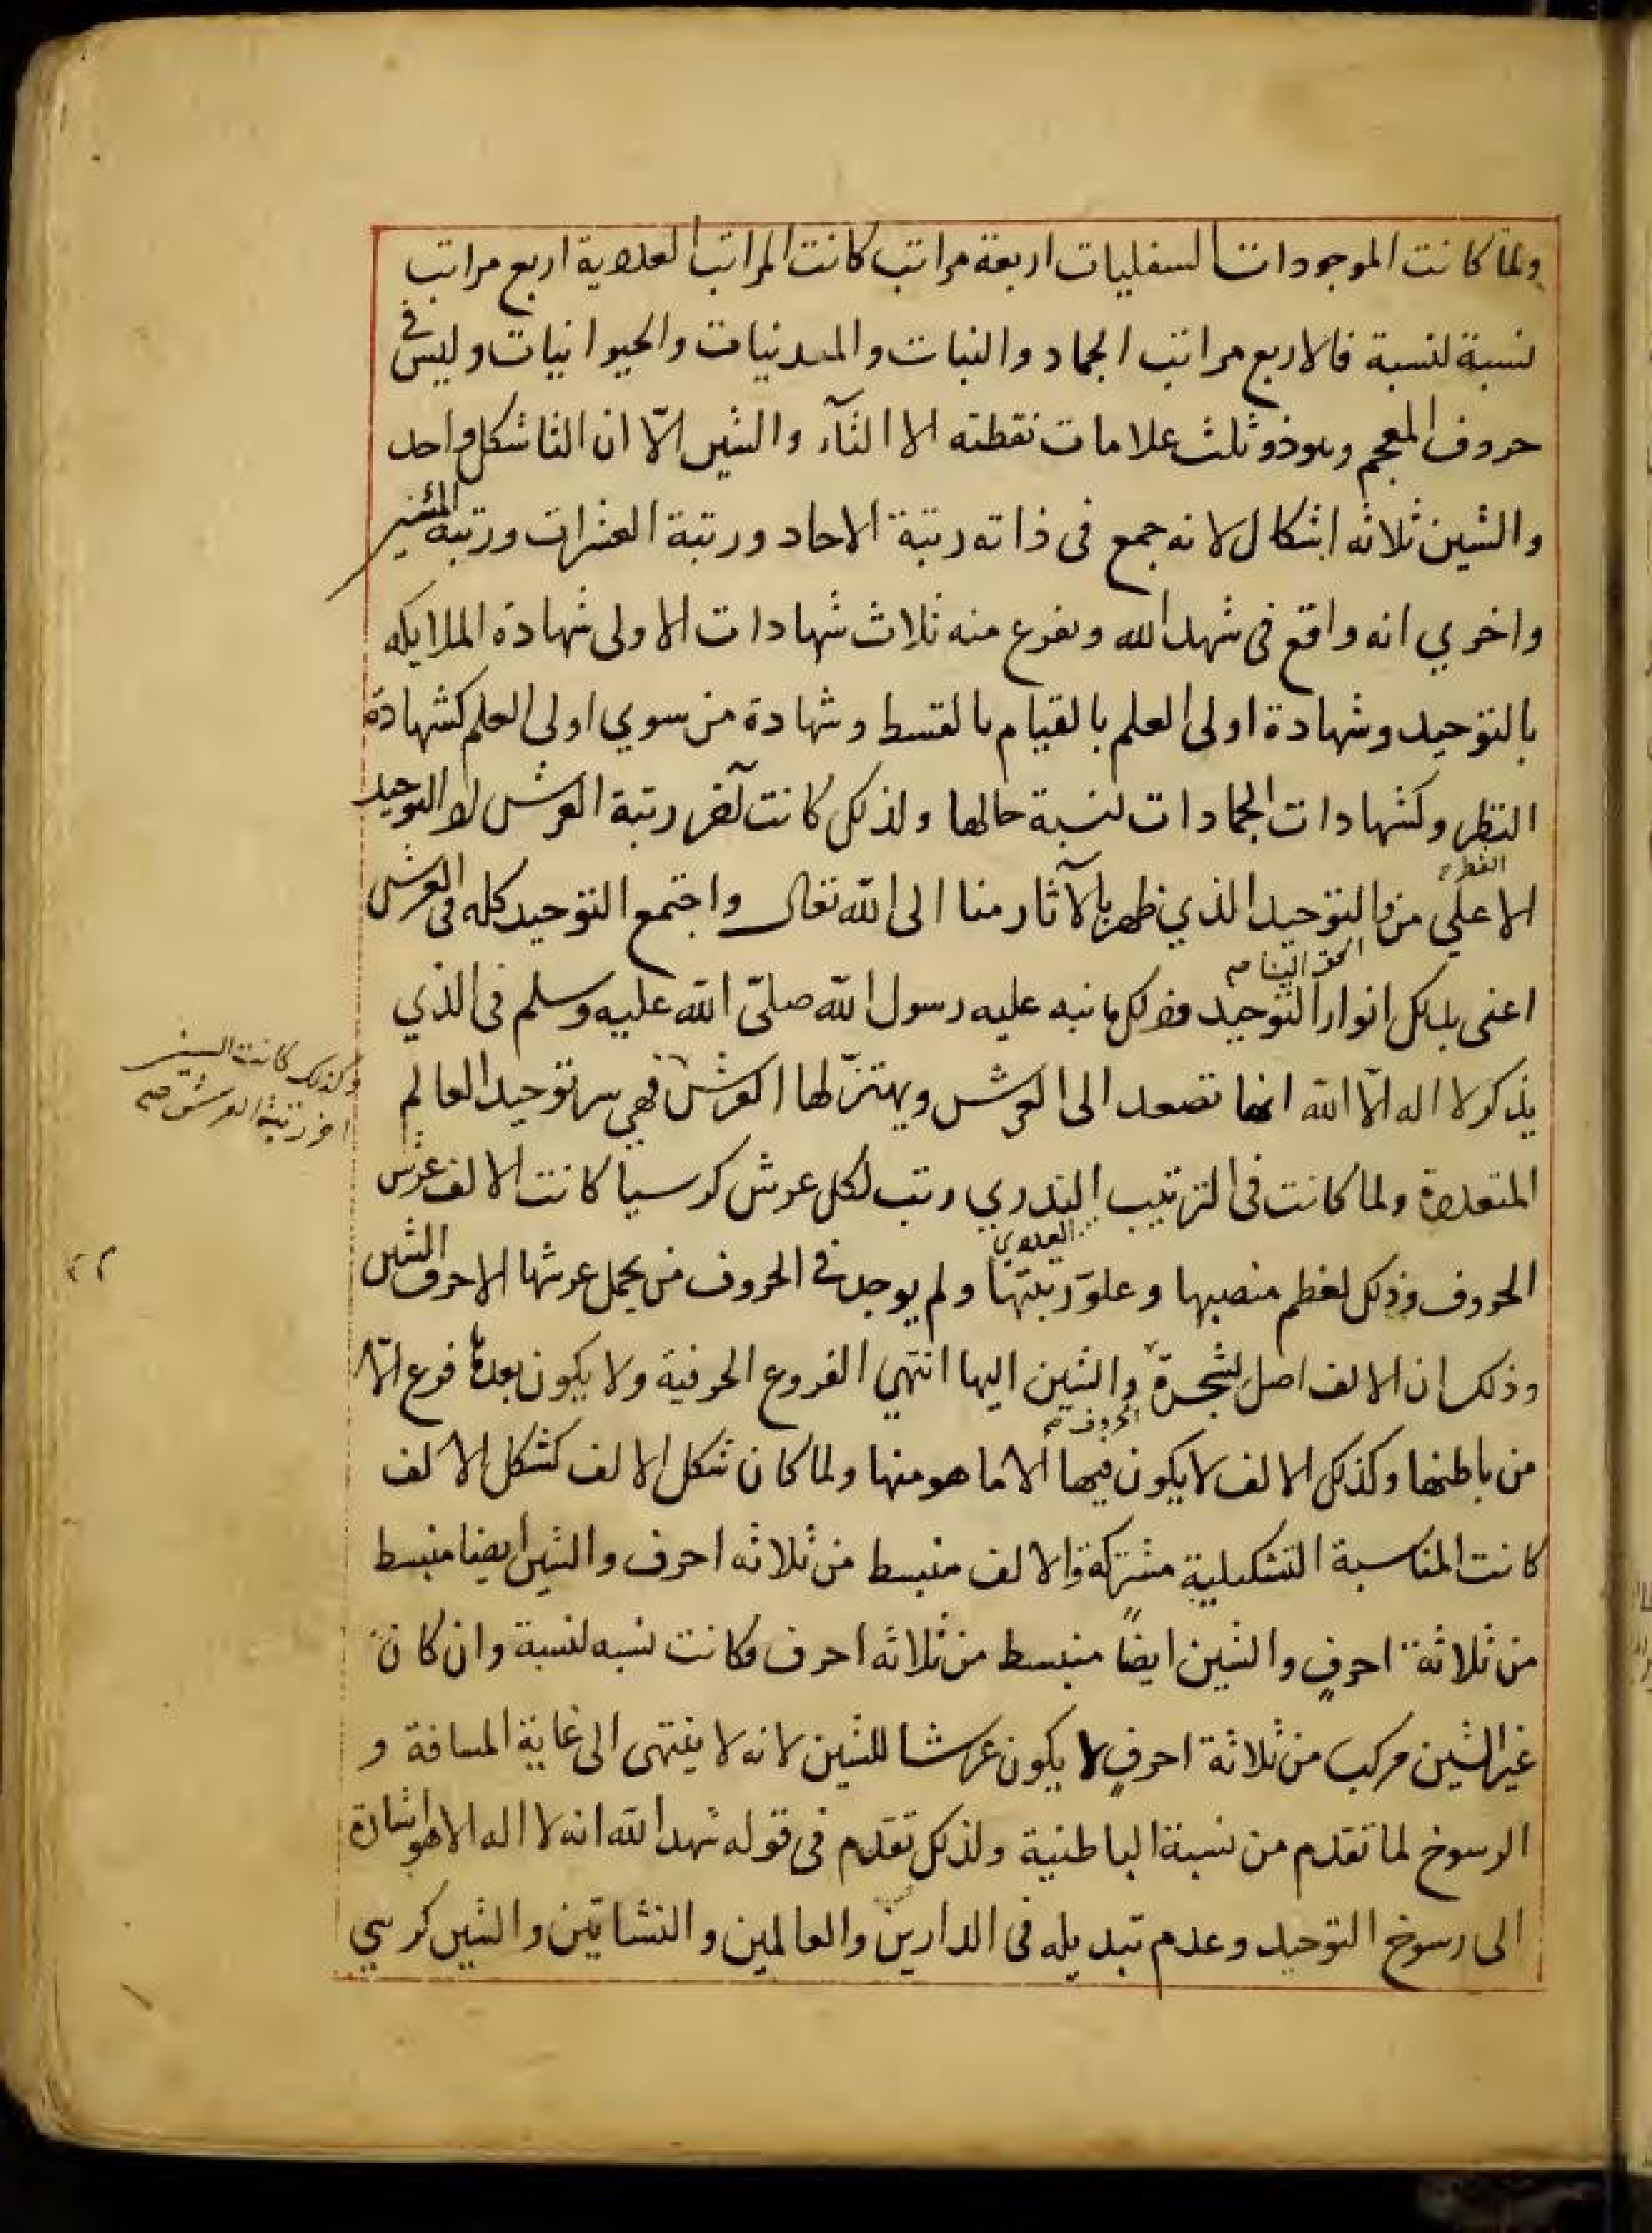 ولما كانت الموجودات السفليات اربعة مراتب كانت المراتب العلوية اربع مراتب
نسبة لنسبة فالاربع مراتب الجماد والنبات والمعدنيات والحيوانيات وليس في
حروف المعجم وهو ذو ثلث علامات نقطته الا الثآء والشين الّا ان الثا شكل واحد
والشين ثلاثه اشكال لانه جمع فى ذاته رتبة الاحاد ورتبة العشرات ورتبة المئين
واخري انه واقع فى شهد الله وتفرع منه ثلاث شهادات الاولى شهادة الملايكه
بالتوحيد وشهادة اولى العلم بالقيام بالقسط وشهادة من سوي اولى العلم كشهادة
النظر وكشهادات الجمادات لنسبة حالها ولذلك كانت آخر رتبة العرش لان التوحيد
الفطرة
الاعلي من التوحيد الذي ظهر بالآثار منا الى الله تعالى واجتمع التوحيد كله فى العرش
اعنى بذلك انوار التوحيد وذلك ما نبه عليه رسول الله صلىّ الله عليه وسلم فى الذي
وكذلك كانت الشين
اخر رتبة العرش صح
يذكر لا اله الّا الله انها تصعد الى العرش ويهتزّ لها العرش فهي سر توحيد العالم
المتعددة ولما كانت فى الترتيب رتب لكل عرش كرسيا كانت الالف عرش
الحروف وذلك لعظم منصبها وعلوّ رتبتها ولم يوجد في الحروف من يحمل عرشها الا حرف الشين
وذلك ان الالف اصل لشجرة والشين اليها انتهي الفروع الحرفية ولا يكون بعدها فرع الّا
الحروف صح
من باطنها وكذلك الالف لا يكون فيها الا ما هو منها ولما كان شكل الالف كشكل الالف
كانت المناسبة التشكيلية مشتركة والالف منبسط من ثلاثه احرف والشين ايضا منبسط
من ثلاثة احرفٍ والشين ايضاً منبسط من ثلاثه احرف فكانت نسبه لنسبة وان كان
غير الشين مركب من ثلاثة احرفٍ لا يكون عرشا للشين لانه لا ينتهى الى غاية المسافة و
الرسوخ لما تقدم من نسبة الباطنية ولذلك تقدم فى قوله شهد الله انه لا اله الا هو اشارة
الى رسوخ التوحيد وعدم تبديله فى الدارين والعالمين والنشاتين والشين كرسي